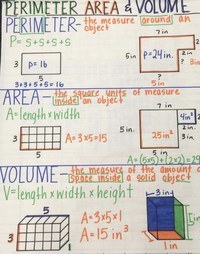 PERIMETER AREA & VOLUME
PERIMETER- the measure around an object
P= 5+5+5+5
7 in
2
5 in
P=24in.
2 in
? 3in
3
P=16
5
3+3+5+5=16
?
5 in
AREA- the square units of measure inside an object
A=length x width
7 in
4in²
2 in.
5 in.
25in²
3 in.
5 in
3
A=3x5=15
5
A=(5x5)+(2x2)=29
VOLUME- the measure of the amount of space inside a solid object
V=length x width x height
3in
A=3x5x1
A=15 in³
3
5
1
5in
1in